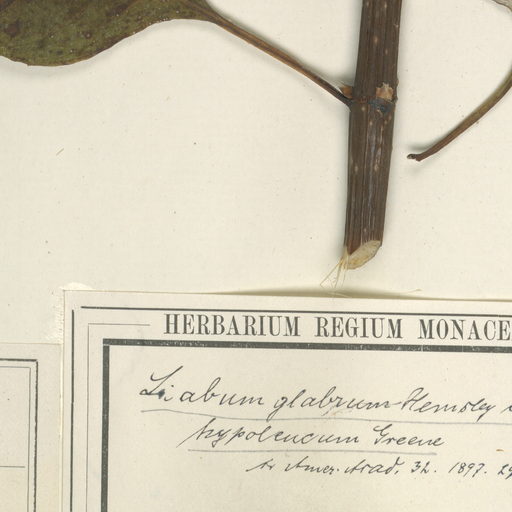 HERBARIUM REGIUM MONACE
Liabum glabrum Hemsley
hypoleucum Greene
Amer. Acad. 32. 1897. 29